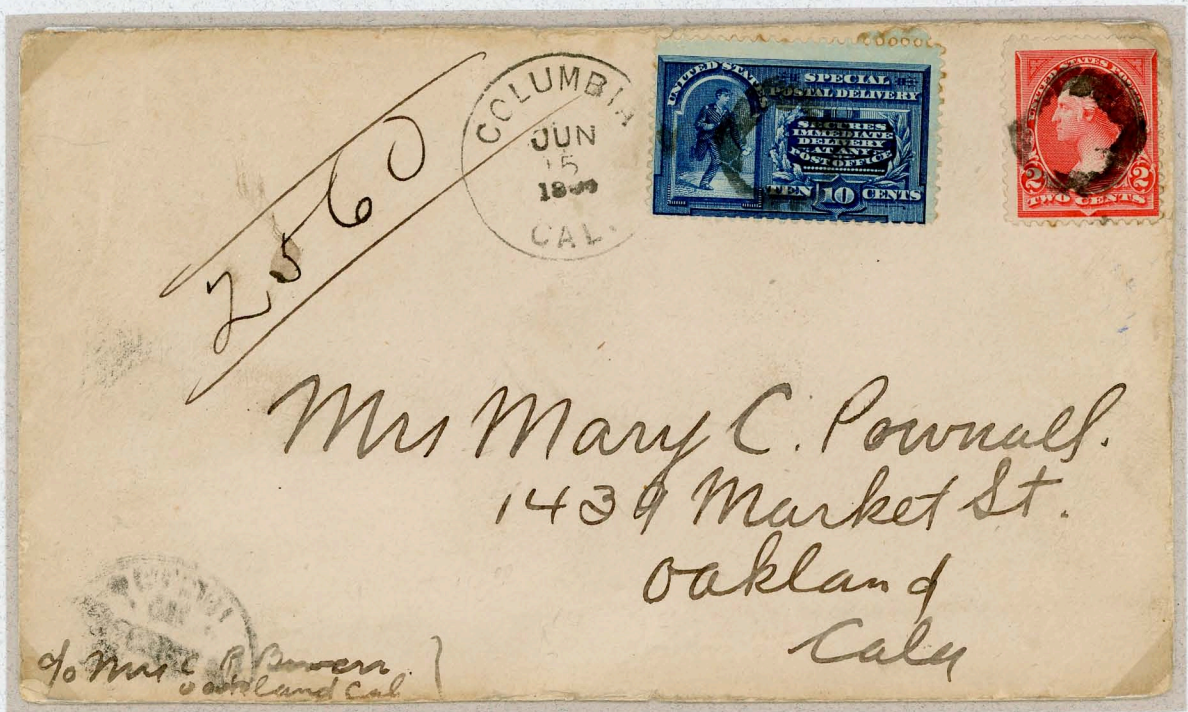 2560
COLUMBIA
JUN
15
CAL.
UNITED STATES
SPECIAL
POSTAL DELIVERY
SECURES
IMMEDIATE
DELIVERY
AT ANY
POST OFFICE
TEN 10 CENTS
UNITED STATES POSTAGE
2 2
TWO CENTS
Mrs Mary C. Pownall.
1439 Market St.
Oakland
Cala
c/o Mrs C P
Oakland Cal